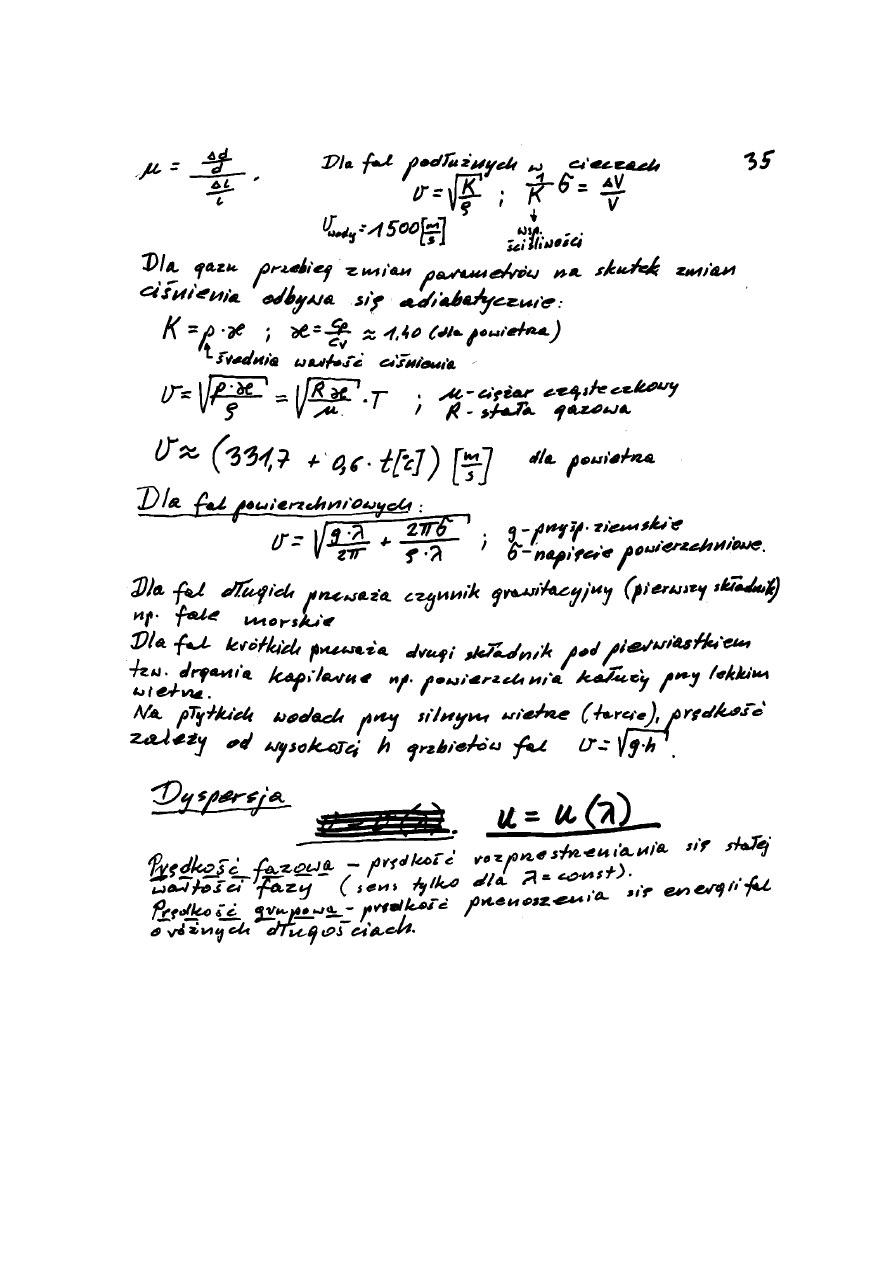 μ = (Δd/d)/(Δl/l) . Dla fal podłużnych w cieczach 35
υ = √(K/ρ) ; 1/K σ = ΔV/V
υ wody = 1500 [m/s] wsp. ściśliwości
Dla gazu przebieg zmian parametrów na skutek zmian
ciśnienia odbywa się adiabatycznie:
K = p·ϰ ; ϰ = Cp/Cv ≈ 1,40 (dla powietrza)
średnia wartość ciśnienia
υ = √(p·ϰ/ρ) = √(Rϰ/μ)·T ; μ - ciężar cząsteczkowy
; R - stała gazowa
υ ≈ (331,7 + 0,6·t[°C]) [m/s] dla powietrza
Dla fal powierzchniowych:
υ = √(g·λ/2π + 2πσ/ρ·λ) ; g - przysp. ziemskie
σ - napięcie powierzchniowe.
Dla fal długich przeważa czynnik grawitacyjny (pierwszy składnik)
np. fale morskie
Dla fal krótkich przeważa drugi składnik pod pierwiastkiem
tzw. drgania kapilarne np. powierzchnia kałuży przy lekkim
wietrze.
Na płytkich wodach przy silnym wietrze (tarcie), prędkość
zależy od wysokości h grzbietów fal υ = √(g·h) .
Dyspersja
u = u(λ)
Prędkość fazowa - prędkość rozprzestrzeniania się stałej
wartości fazy (sens tylko dla λ = const).
Prędkość grupowa - prędkość przenoszenia się energii fal
o różnych długościach.